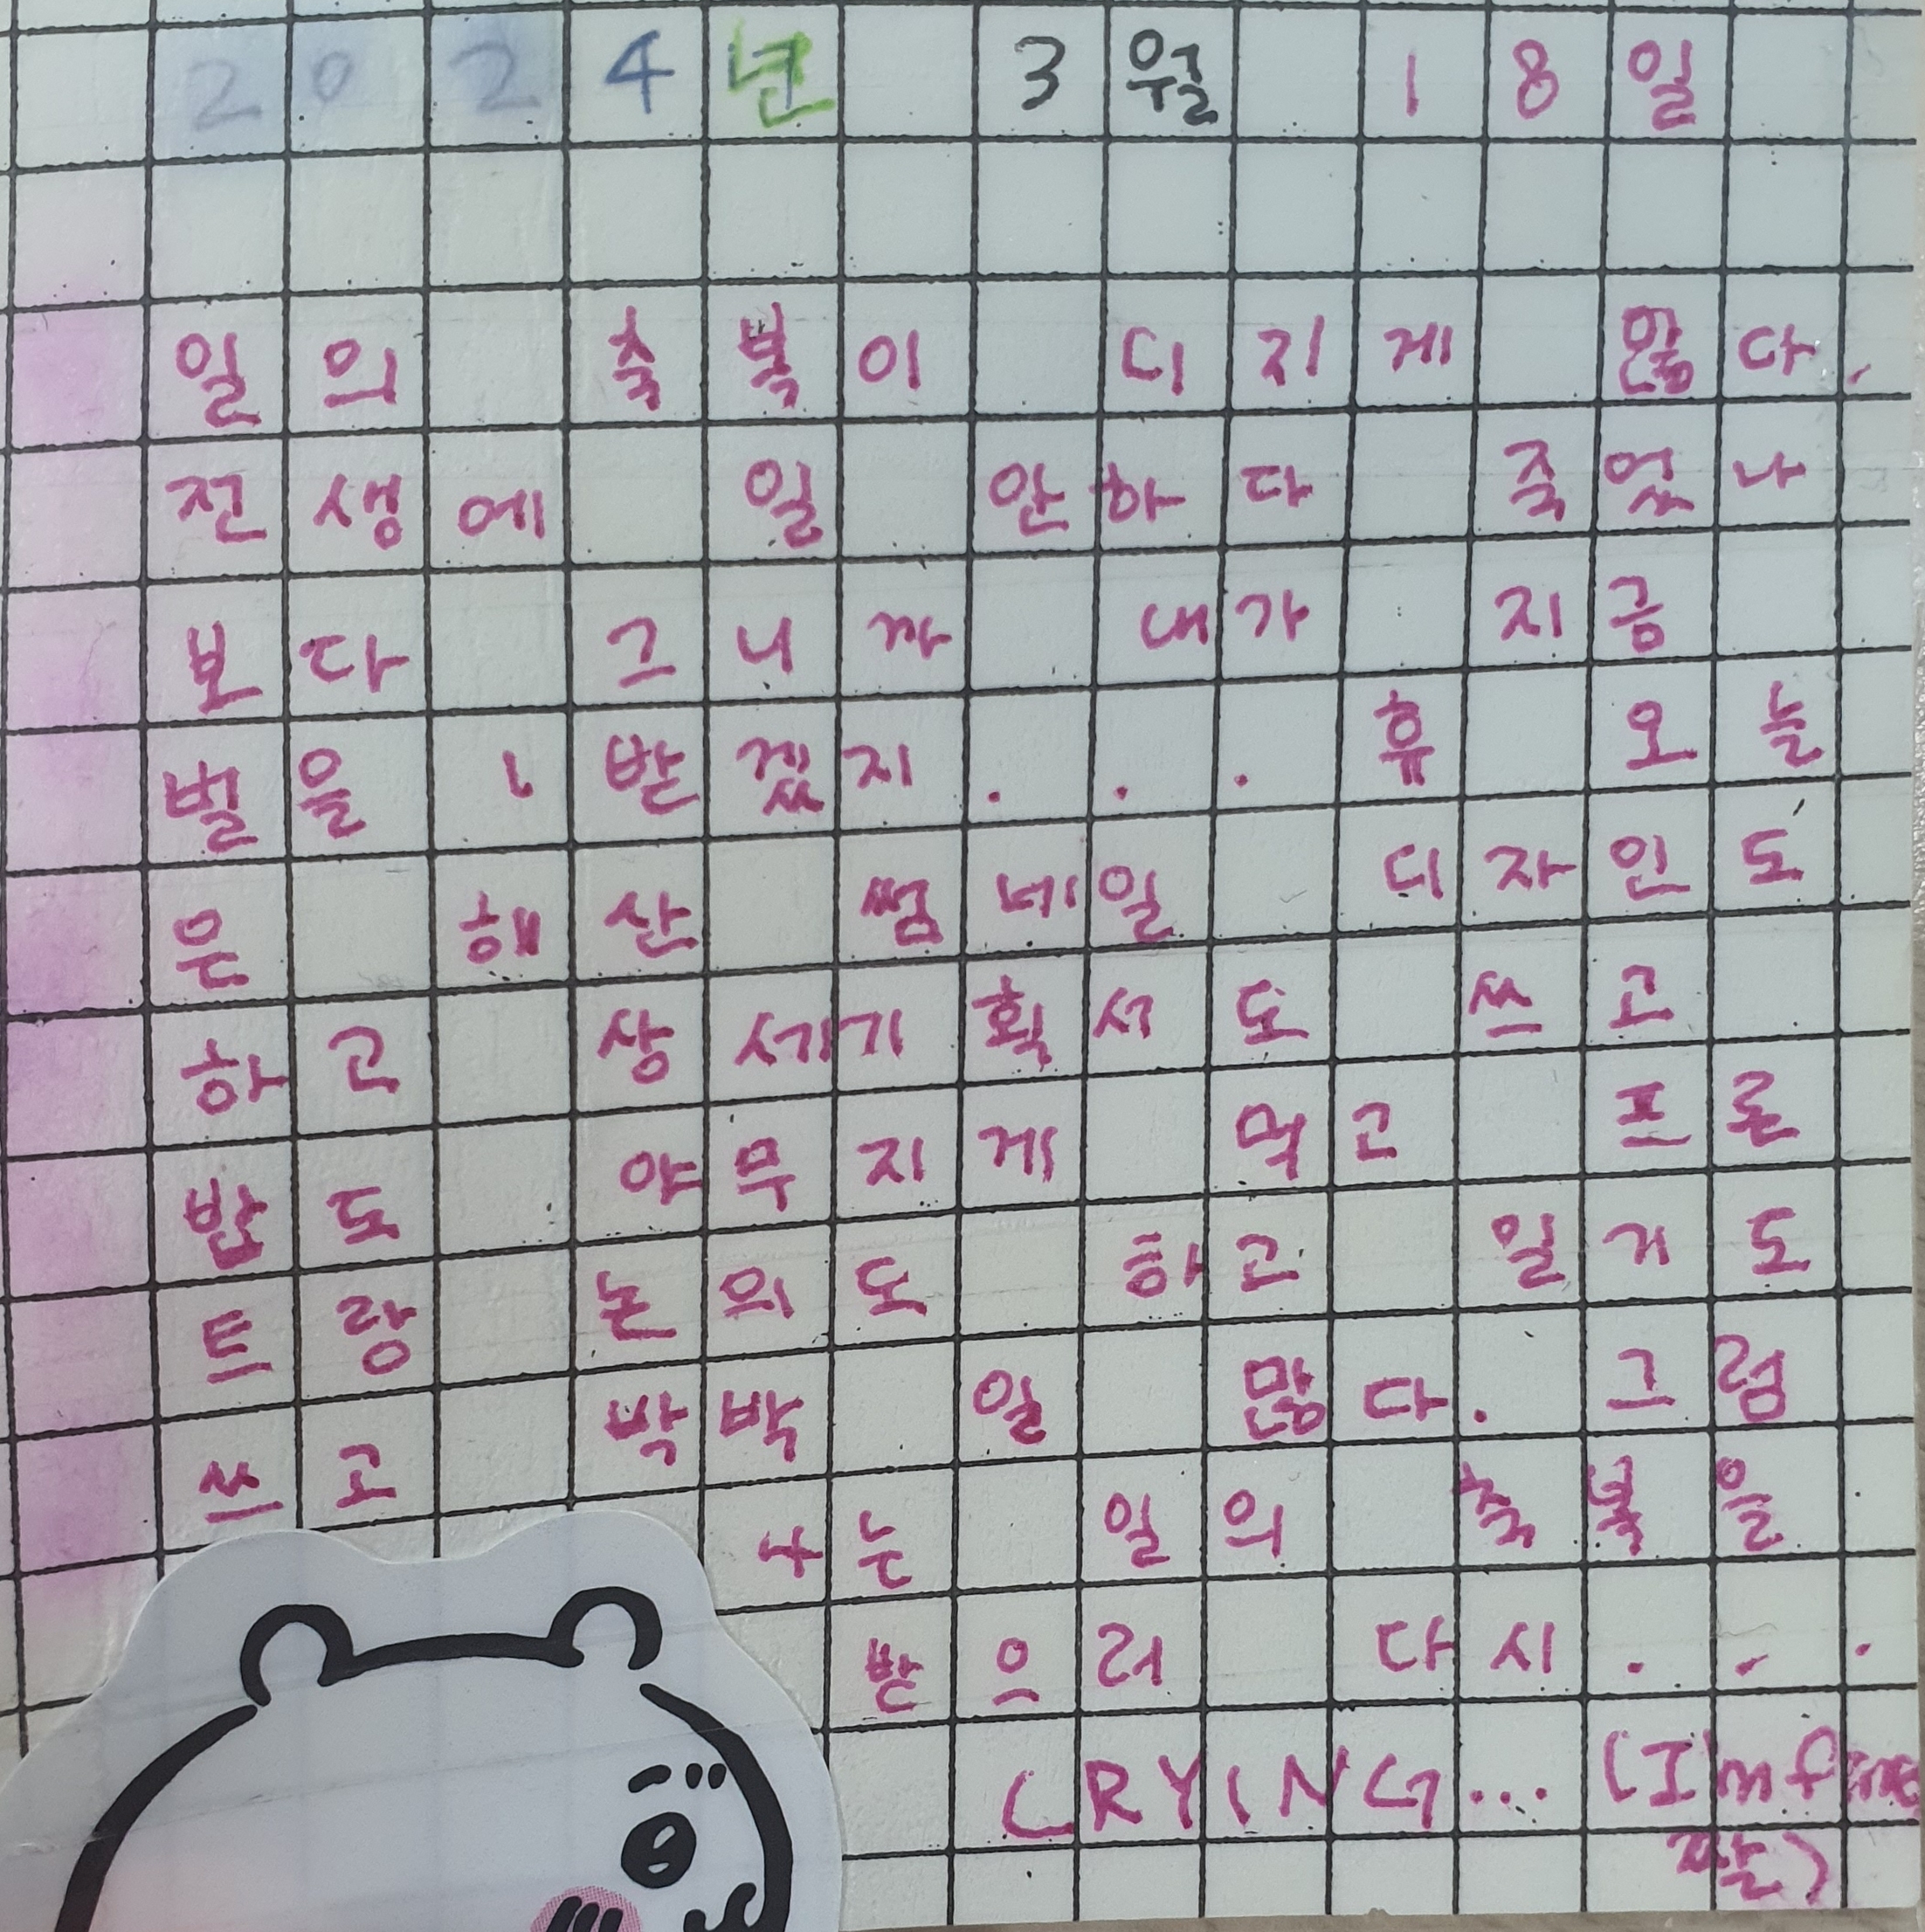 2024년 3월 18일
일의 축복이 디지게 많다.
전생에 일 안하다 죽었나
보다 그니까 내가 지금
벌을 받겠지... 휴 오늘
은 해산 썸네일 디자인도
하고 상세기획서도 쓰고
밥도 야무지게 먹고 프론
트랑 논의도 하고 일기도
쓰고 박박 일 많다. 그럼
나는 일의 축복을
받으러 다시...
CRYING... (I'm fine
짤)